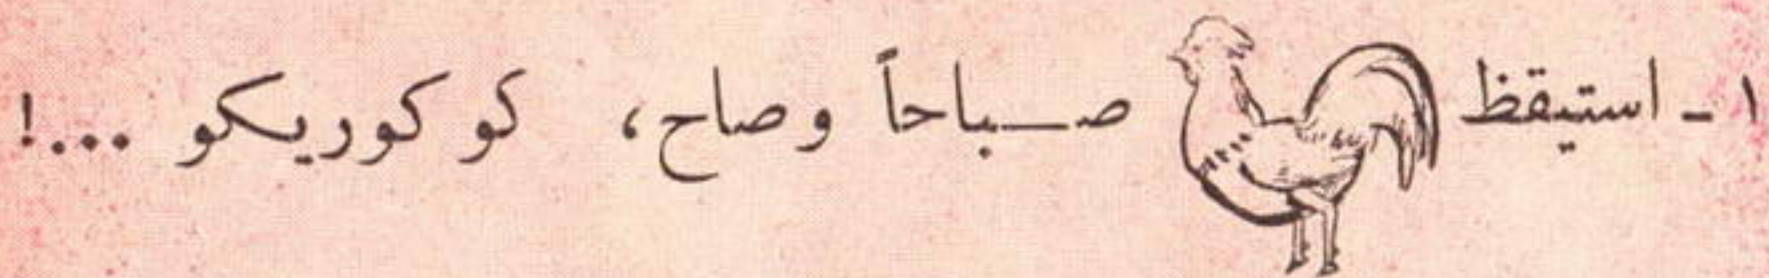 ١ - استيقظ صباحاً وصاح، كو كوريكو ...!